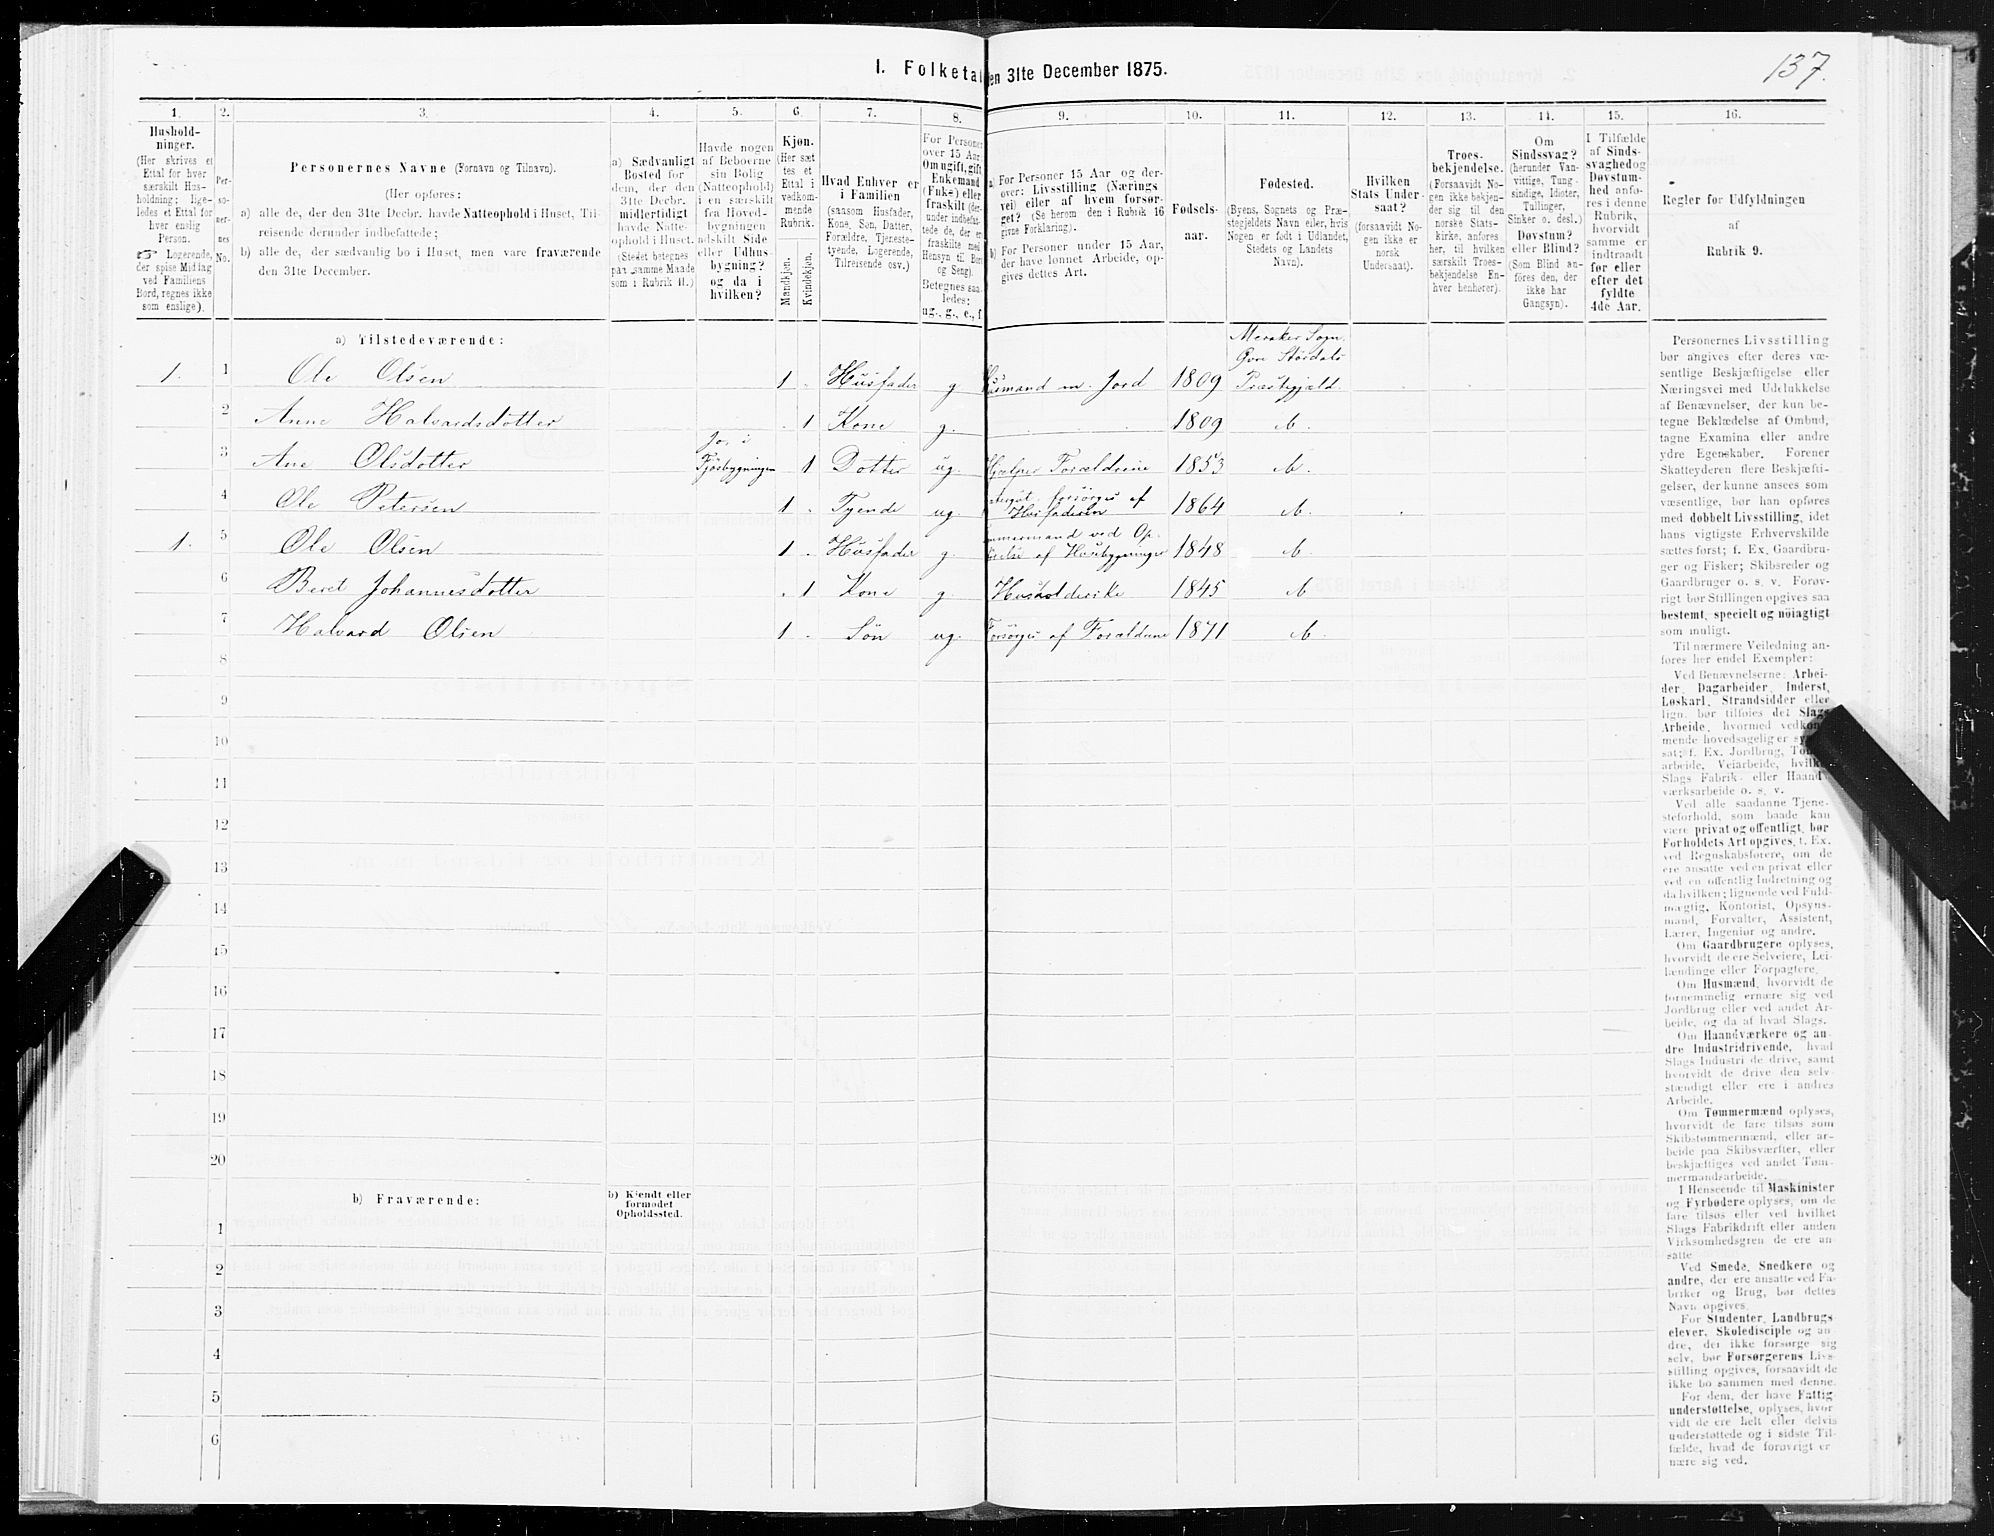 1. Folketa en 31te December 1875.
137.
1.
Hushold-
ninger.
(Her skrives et
Ettal for hver
særskilt Hus-
holdning; lige-
ledes et Ettal for
hver enslig
Person.
☞ Logerende,
der spise Middag
ved Familiens
Bord, regnes ikke
som enslige).
2.
Per-
so-
ner-
nes
No.
3.
Personernes Navne (Fornavn og Tilnavn).
(Her opføres:
a) alle de, der den 31te Decbr. havde Natteophold i Huset, Til-
reisende derunder indbefattede;
b) alle de, der sædvanlig bo i Huset, men vare fraværende
den 31te December.
4.
a) Sædvanligt
Bosted for
dem, der den
31te Decbr.
midlertidigt
havde Natte-
ophold i Huset.
(Stedet betegnes
paa samme Maade
som i Rubrik 11.)
5.
Havde nogen
af Beboerne
sin Bolig
(Natteophold)
i en særskilt
fra Hoved-
bygningen
adskilt Side
eller Udhus-
bygning?
og da i
hvilken?
6.
Kjøn.
(Her sæt
tes et
Ettal i
vedkom-
mende
Rubrik.
Mandkjøn.
Kvindekjøn.
7.
Hvad Enhver er
i Familien
(saasom Husfader,
Kone, Søn, Datter,
Forældre, Tjeneste-
tyende, Logerende,
Tilreisende osv.)
8.
For Persone
over 15 Aar:
Om ugift, gift,
Enkemand
(Enke) eller
fraskilt (der-
under indbefat-
tede de, der er
fraskilte med
Hensyn til Bor
og Seng).
Betegnes saa-
ledes:
ug., g., e., f
9.
a) For Personer 15 Aar og der-
over: Livsstilling (Nærings
vei) eller af hvem forsør-
get? (Se herom den i Rubrik 16
givne Forklaring).
b) For Personer under 15 Aar,
der have lønnet Arbeide, op-
gives dettes Art.
10.
Fødsels-
aar.
11.
Fødested.
(Byens, Sognets og Præ-
stegjeldets Navn eller, hvis
Nogen er født i Udlandet,
Stedets og Landets
Navn).
12.
Hvilken
Stats Under-
saat?
(forsaavidt No-
gen ikke er
norsk
Undersaat).
13.
Troes-
bekjendelse.
(Forsaavidt No-
gen ikke bekjen-
der sig til den
norske Stats-
kirke, anføres
her, til hvilken
særskilt Troes-
bekjendelse En-
hver henhører).
14.
Om
Sindssvag?
(herunder Van-
vittige, Tung-
sindige, Idioter,
Tullinger,
Sinker o. desl.)
Døvstum?
eller Blind?
(Som Blind an-
føres den, der
ikke har
Gangsyn).
15.
I Tilfælde
af Sinds-
svaghed og
Døvstum-
hed anfø-
res i denne
Rubrik,
hvorvidt
samme er
indtraadt
før eller
efter det
fyldte
4de Aar.
16.
Regler for Udfyldningen
af
Rubrik 9.
a) Tilstedeværende:
Meraker Sogn.
Øvre Stördals
1. 1 Ole Olsen 1 . Husfader g. Husmand m. Jord 1809 Præstegjæld.
2 Anne Halvardsdotter . 1 Kone g. 1809 M.
Jo, i
3 Ane Olsdotter Fjösbygningen . 1 Dotter ug. Hjælper Forældrene 1853 M.
4 Ole Petersen 1 . Tyende ug. forsörges af Husfaderen 1864 M.
1. 5 Ole Olsen 1 . Husfader g. ömmermand ved Op- af Husbygninger 1848 M.
6 Beret Johannesdotter . 1 Kone g. 1845 M
7 Halvard Olsen 1 . Sön ug. Forsörges af Forældrene 1871 M.
8
9
10
11
12
13
14
15
16
17
18
19
20
b) Fraværende:
b) Kjendt eller
formodet
Opholdssted.
1
2
3
4
5
6
Personernes Livsstilling
bør angives efter deres væ-
sentlige Beskjæftigelse eller
Næringsvei med Udelukkelse
af Benævnelser, der kun be-
tegne Beklædelse af Ombud,
tagne Examina eller andre
ydre Egenskaber. Forener
Skatteyderen flere Beskjæfti-
gelser, der kunne ansees som
væsentlige, bør han opføres
med dobbelt Livsstilling, idet
hans vigtigste Erhvervskilde
sættes først; f. Ex. Gaardbru-
ger og Fisker; Skibsreder og
Gaardbruger o. s. v. Forøv-
rigt bør Stillingen opgives saa
bestemt, specielt og nøiagtigt
som muligt.
Til nærmere Veiledning an-
føres her endel Exempler:
Ved Benævnelserne: Arbei-
der, Dagarbeider, Inderst,
Løskarl, Strandsidder eller
lign. bør tilføies det Slags
Arbeide, hvormed vedkom-
mende hovedsagelig er syssel-
sat; f. Ex. Jordbrug, Tømmer-
arbeide, Veiarbeide, hvilket
Slags Fabrik- eller Haand-
værksarbeide o. s. v.
Ved alle saadanne Tjene-
steforhold, som baade kan
være privat og offentligt, bør
Forholdets Art opgives, f. Ex.
ved Regnskabsførere, om de
ere ansatte ved en privat eller
ved en offentlig Indretning og
da hvilken; lignende ved Fuld-
mægtig, Kontorist, Opsyns-
mand, Forvalter, Assistent,
Lærer, Ingeniør og andre.
Om Gaardbrugere oplyses,
hvorvidt de ere Selveiere, Lei-
lændinge eller Forpagtere.
Om Husmænd, hvorvidt de
fornemmelig ernære sig ved
Jordbrug eller ved andet Ar-
beide, og da af hvad Slags.
Om Haandværkere og an-
dre Industridrivende, hvad
Slags Industri de drive, samt
hvorvidt de drive den selv-
stændigt eller ere i andres
Arbeide.
Om Tømmermænd oplyses,
hvorvidt de fare tilsøs som
Skibstømmermænd, eller ar-
beide paa Skibsværfter, eller
beskjæftiges ved andet Tøm-
mermandsarbeide.
I Henseende til Maskinister
og Fyrbødere oplyses, om de
fare tilsøs eller ved hvilket
Slags Fabrikdrift eller anden
Virksomhedsgren de ere an-
satte
Ved Smede, Snedkere og
andre, der ere ansatte ved Fa-
briker og Brug, bør dettes
Navn opgives.
For Studenter, Landbrugs-
elever, Skoledisciple og an-
dre, der ikke forsørge sig
selv, bør Forsørgerens Livs-
stilling opgives, forsaavidt de
ikke bo sammen med denne.
For dem, der have Fattig-
understøttelse, oplyses, hvor-
vidt de ere helt eller delvis
understøttede og i sidste Til-
fælde, hvad de forøvrigt er-
nære sig ved.